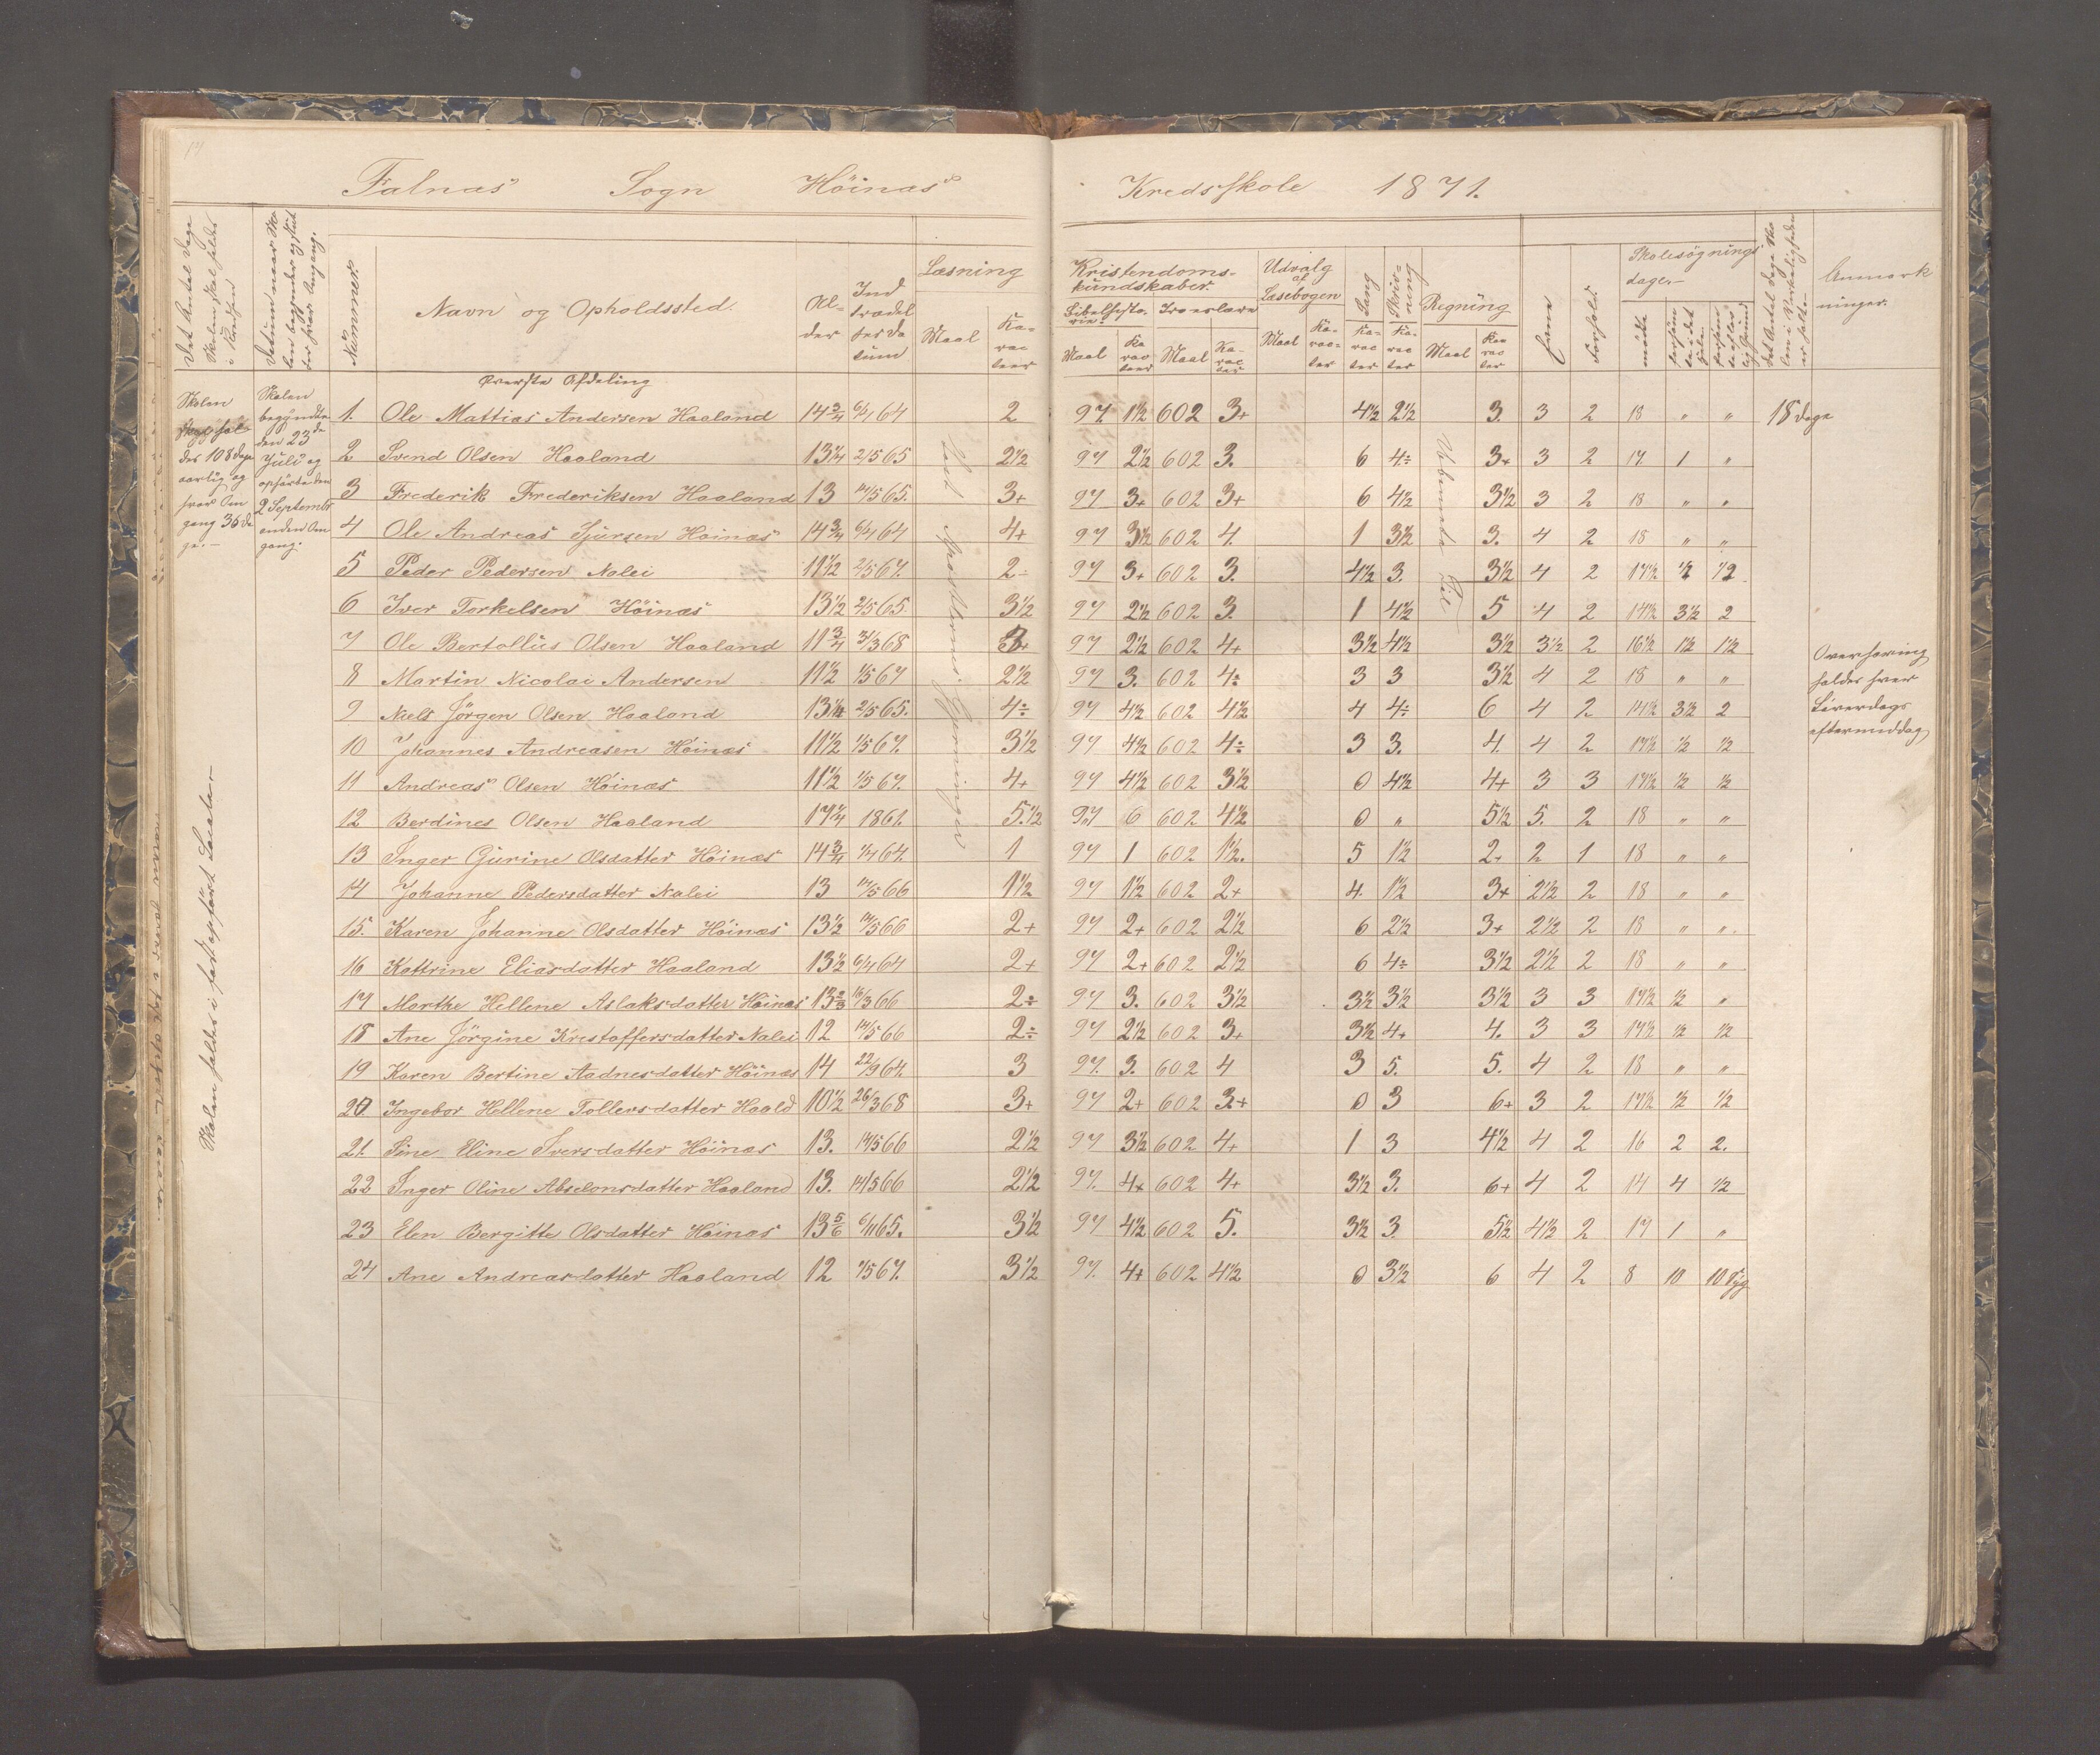 Falnæs Sogn Höinæs Kredsskole 1871.
Det Antal Dage Skolen skal holdes i Kredsen
Nummer.
Navn og Opholdssted.
Alder
Indtrædelsesdatum
Læsning
Maal
Karacteer
Kristendomskundskaber.
Bibelhistorie.
Troeslære
Maal
Karacteer
Maal
Karacter
Udvalg af Læsebogen
Maal
Karacter
Sang
Karacter
Skrivning
Karacter
Regning
Maal
Karacter
Evne
Forhold.
Skolesøgningsdage.
mødte
forsømte i det hele.
Anmærkninger.
Skolen
holdes 108 Dage
aarlig og
hver Omgang 36 Dage.
Skolen
begyndte
den 23de
Juli og
ophørte den
2 September
anden Omgang.
Skolen holdes i fast opført Locale
Øverste Afdeling
1. Ole Mattias Andersen Haaland 14 3/4 6/4 64 2 97 1½ 602 3+ 4½ 2½ 3. 3 2 18 " " 18 dage
2 Svend Olsen Haaland 13¼ 2/5 65 2½ 97 2½ 602 3. 6 4÷ 3+ 3 2 17. 1 "
3 Frederik Frederiksen Haaland 13 14/5 65. 3+ 97 3+ 602 3+ 6 4½ 3½ 3 2 18 " "
4 Ole Andreas Sjursen Höinæs 14 3/4 6/4 64 4+ 97 3½ 602 4. 1 3½ 3. 4 2 18 " "
5 Peder Pedersen Nalei 11½ 2/5 67. 2÷ 97 3+ 602 3. 4½ 3. 3½ 4 2 17½ ½ ½
6 Iver Torkelsen Höinæs 13½ 2/5 65. 3½ 97 2½ 602 3. 1 4½ 5 4 2 14½ 3½ 2
7 Ole Bertollus Olsen Haaland 11 3/4 31/3 68 3+ 97 2½ 602 4+ 3½ 4½ 3½ 3½ 2 16½ 1½ 1½
8 Martin Nicolai Andersen 11½ 1/5 67 2½ 97 3. 602 4÷ 3 3 3½ 4 2 18 " "
9 Niels Jörgen Olsen Haaland 13¼ 2/5 65. 4÷ 97 4½ 602 4½ 4 4÷ 6 4 2 14½ 3½ 2
10 Johannes Andreasen Höinæs 11½ 1/5 67. 3½ 97 4½ 602 4÷ 3 3. 4. 4 2 17½ ½ ½
11 Andreas Olsen Höinæs 11½ 1/5 67. 4+ 97 4½ 602 3½ 0 4½ 4+ 3 3 17½ ½ ½
12 Berdines Olsen Haaland 17¼ 1861. 5.½ 97 6 602 4½ 0 " 5½ 5. 2 18 " "
13 Inger Gurine Olsdatter Höinæs 14 3/4 1/4 64. 1 97 1 602 1½. 5 1½ 2+ 2 1 18 " "
14 Johanne Pedersdatter Nalei 13 14/5 66 1½ 97 1½ 602 2+ 4. 1½ 3+ 2½ 2 18 " "
15. Karen Johanne Olsdatter Höinæs 13½ 14/5 66 2+ 97 2+ 602 2½ 6 2½ 3+ 2½ 2 18 " "
16 Kattrine Eliasdatter Haaland 13½ 6/4 64 2+ 97 2+ 602 2½ 6 4÷ 3½ 2½ 2 18 " "
17 Marthe Hellene Aslaksdatter Höinæs 13 2/3 16/3 66 2÷ 97 3. 602 3½ 3½ 3½ 3½ 3 3 17½ ½ "
18 Ane Jörgine Kristoffersdatter Nalei 12 14/5 66 2÷ 97 2½ 602 3+ 3½ 4+ 4. 3 3 17½ ½ ½
19 Karen Bertine Aadnesdatter Höinæs 14 22/9 64. 3 97. 3. 602 4 3 5. 5. 4 2 18 " "
20 Ingebor Hellene Tollersdatter Haald 10½ 26/3 68 3+ 97 2+ 602 3+ 0 3 6+ 3 2 17½ ½ ½
21. Sine Eline Iversdatter Höinæs 13. 14/5 66 2½ 97 3½ 602 4+ 1 3 4½ 4 2 16 2 2.
22 Inger Oline Abselonsdatter Haaland 13. 14/5 66 2½ 97. 4+ 602 4+ 3½ 3. 6+ 4 2 14 4 ½
23 Elen Bergitte Olsdatter Höinæs 13 5/6 6/11 65. 3½ 97 4½ 602 5. 3½ 3. 5½ 4½ 2 17 1 "
24 Ane Andreasdatter Haaland 12 1/5 67. 3½ 97. 4+ 602 4½ 0 3½ 6 4 2 8 10 10 syg
Overhøring
holdes hver
Löverdags
eftermiddag